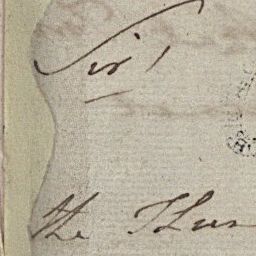 Sir!
the Thus